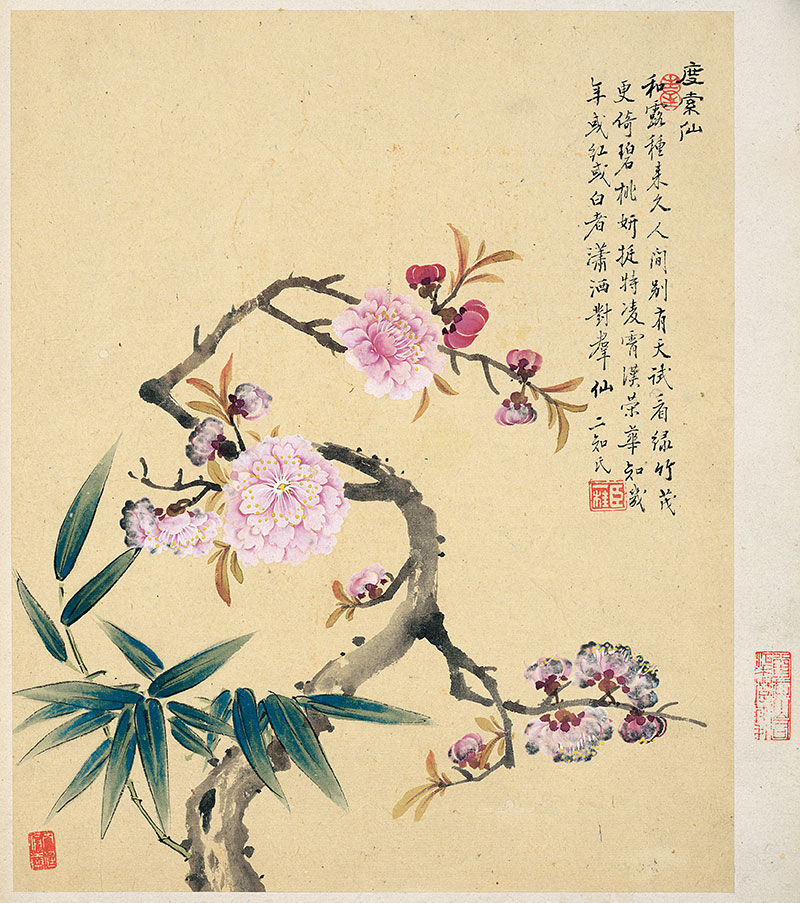 度索仙
和露種来久人間別有天試看緑竹茂
更倚碧桃妍挺特凌霄漢榮華知幾
年或紅或白者瀟洒對羣仙 二知氏
臣